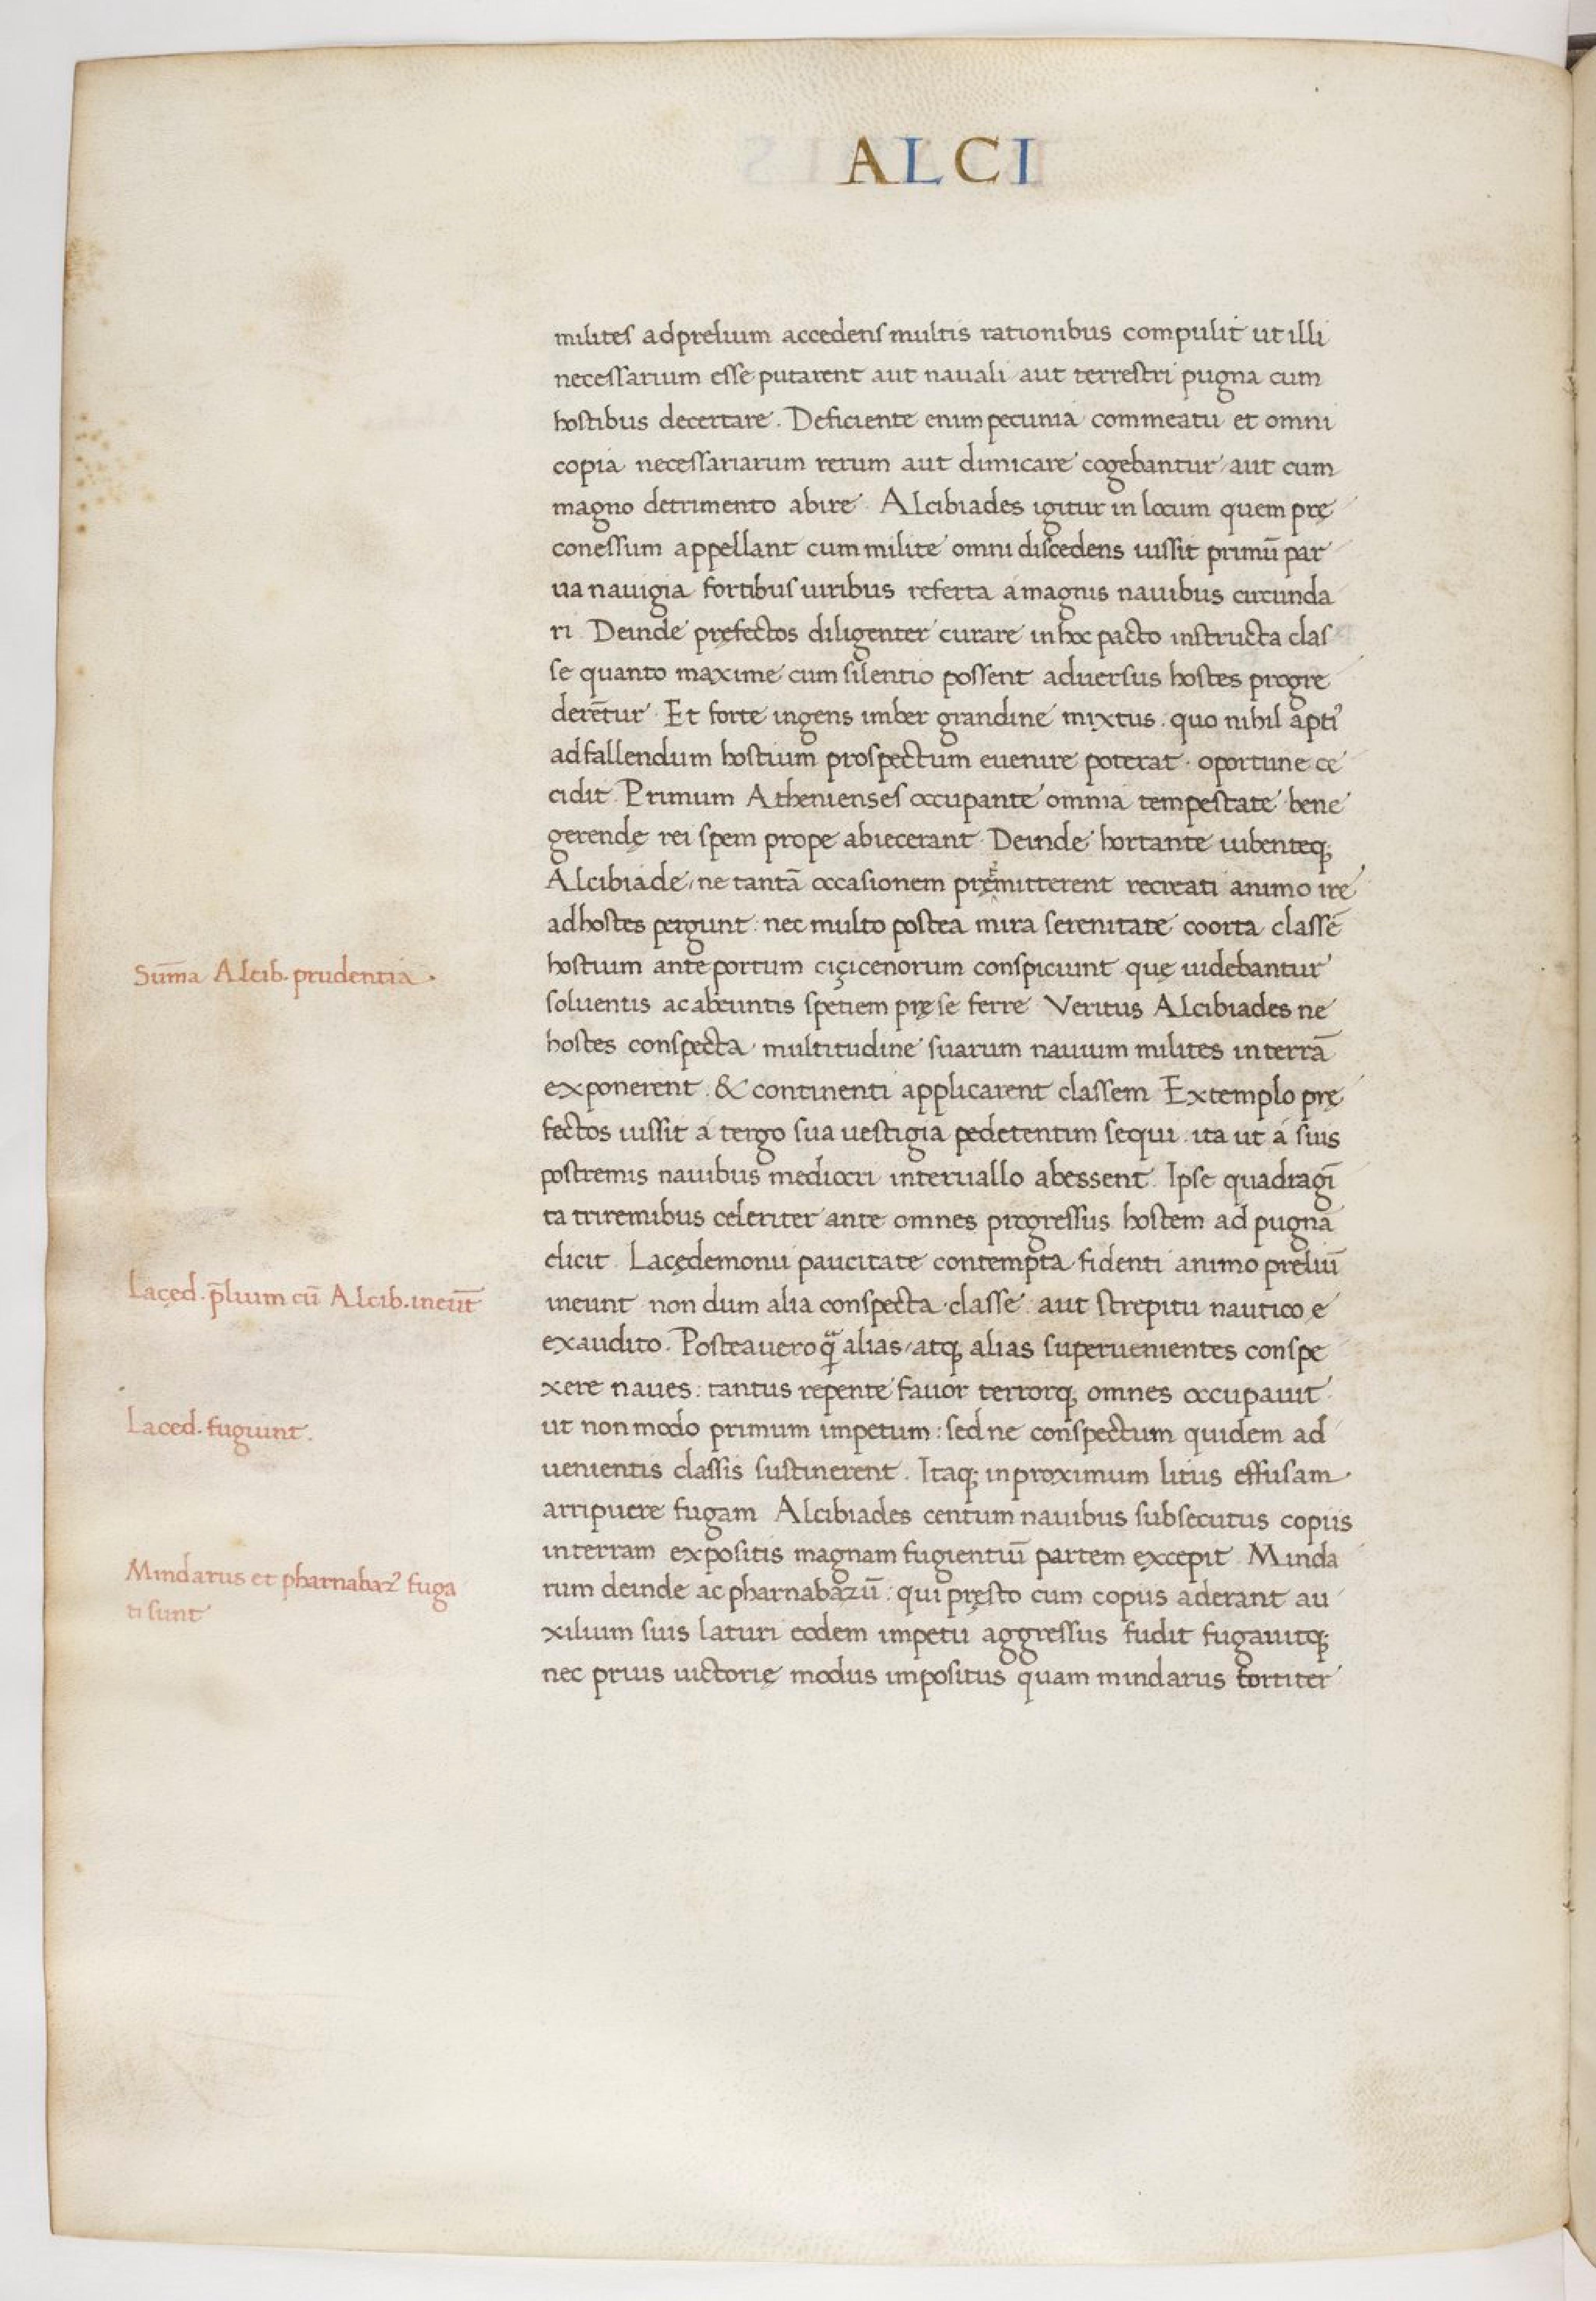 ALCI
milites ad prelium accedens multis rationibus compulit ut illi
necessarium esse putarent aut nauali aut terrestri pugna cum
hostibus decertare. Deficiente enim pecunia commeatu et omni
copia necessariarum rerum aut dimicare cogebantur aut cum
magno detrimento abire. Alcibiades igitur in locum quem prę
conessum appellant cum milite omni discedens iussit primū par
ua nauigia fortibus uiribus referta a magnis nauibus circunda
ri. Deinde pręfectos diligenter curare in hoc pacto instructa clas
se quanto maxime cum silentio possent aduersus hostes progre
derētur. Et forte ingens imber grandine mixtus. quo nihil apti᾽
ad fallendum hostium prospectum euenire poterat. oportune ce
cidit. Primum Athenienses occupante omnia tempestate bene
gerendę rei spem prope abiecerant. Deinde hortante iubenteq;
Alcibiade, ne tantā occasionem pręmitterent recreati animo ire
ad hostes pergunt: nec multo postea mira serenitate coorta classē
Sum̄a Alcib. prudentia.
hostium ante portum ciçicenorum conspiciunt quę uidebantur
soluentis ac abeuntis spetiem prę se ferre. Veritus Alcibiades ne
hostes conspecta multitudine suarum nauium milites in terrā
exponerent. & continenti applicarent classem. Extemplo prę
fectos iussit a tergo sua uestigia pedetentim sequi. ita ut a suis
postremis nauibus mediocri interuallo abessent. Ipse quadragī
ta triremibus celeriter ante omnes progressus hostem ad pugnā
elicit. Lacędemonii paucitate contempta fidenti animo preliū
Lacęd. p̄lium cū Alcib. ineūt
ineunt non dum alia conspecta classe. aut strepitu nautico e
exaudito. Postea uero q̄ alias, atq; alias superuenientes conspe
xere naues: tantus repente fauor terrorq; omnes occupauit
Laced. fugiunt.
ut non modo primum impetum: sed ne conspectum quidem ad
uenientis classis sustinerent. Itaq; in proximum litus effusam
arripuere fugam. Alcibiades centum nauibus subsecutus copiis
in terram expositis magnam fugientiū partem excepit. Minda
Mindarus et pharnabaz᾽ fuga
ti sunt
rum deinde ac pharnabazū: qui pręsto cum copiis aderant au
xilium suis laturi eodem impetu aggressus fudit fugauitq;
nec prius uictorię modus impositus quam mindarus fortiter